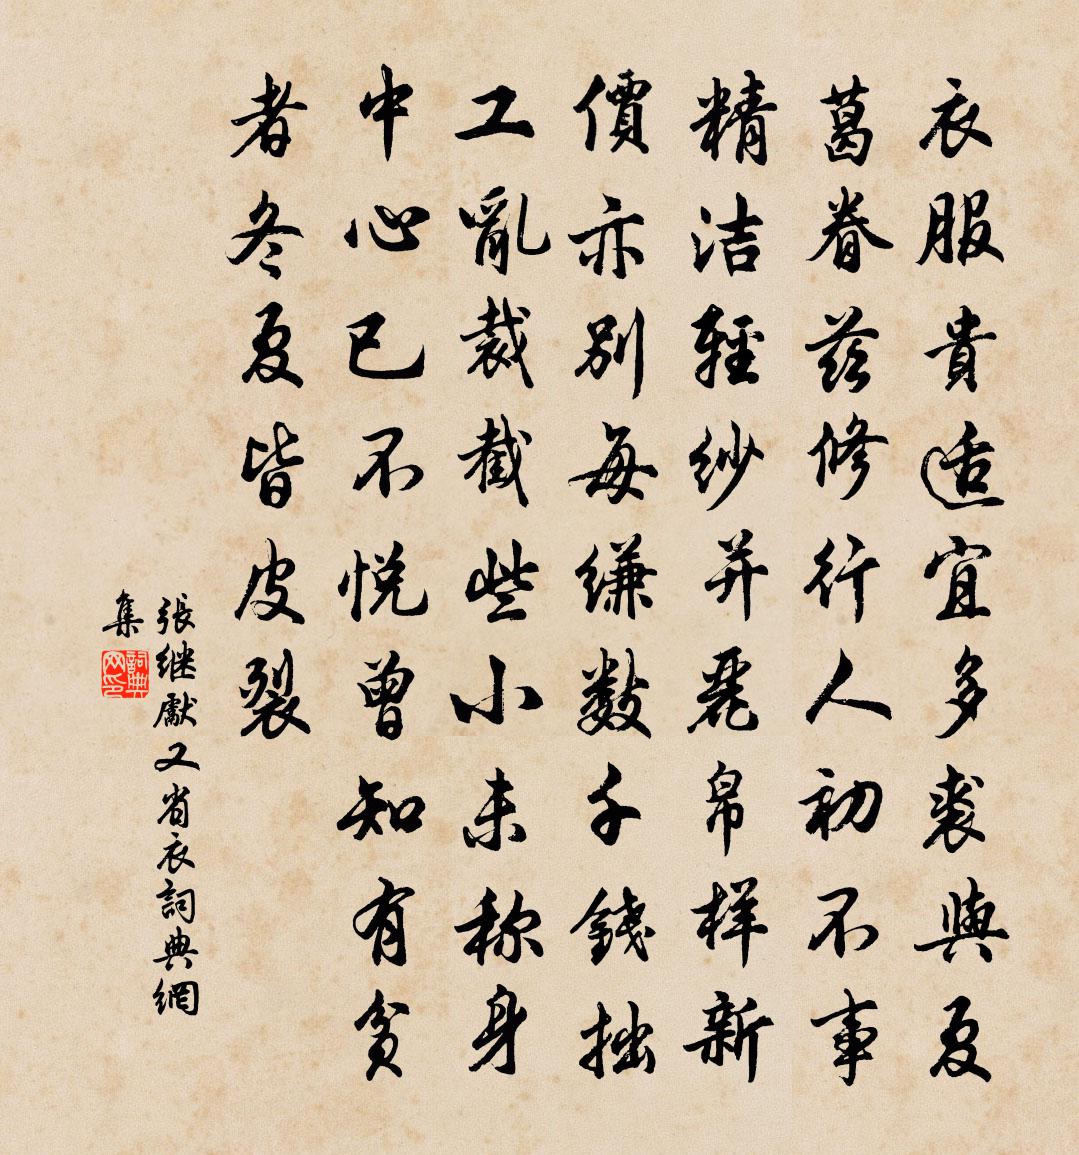 衣服貴适宜多裘與夏
葛眷茲修行人初不事
精洁輕紗并麗帛样新
價亦別每縑數千錢拙
工亂裁截些小未称身
中心已不悅曾知有貧
者冬夏皆皮裂
張继獻又省衣詞典網
集
詞典
网印